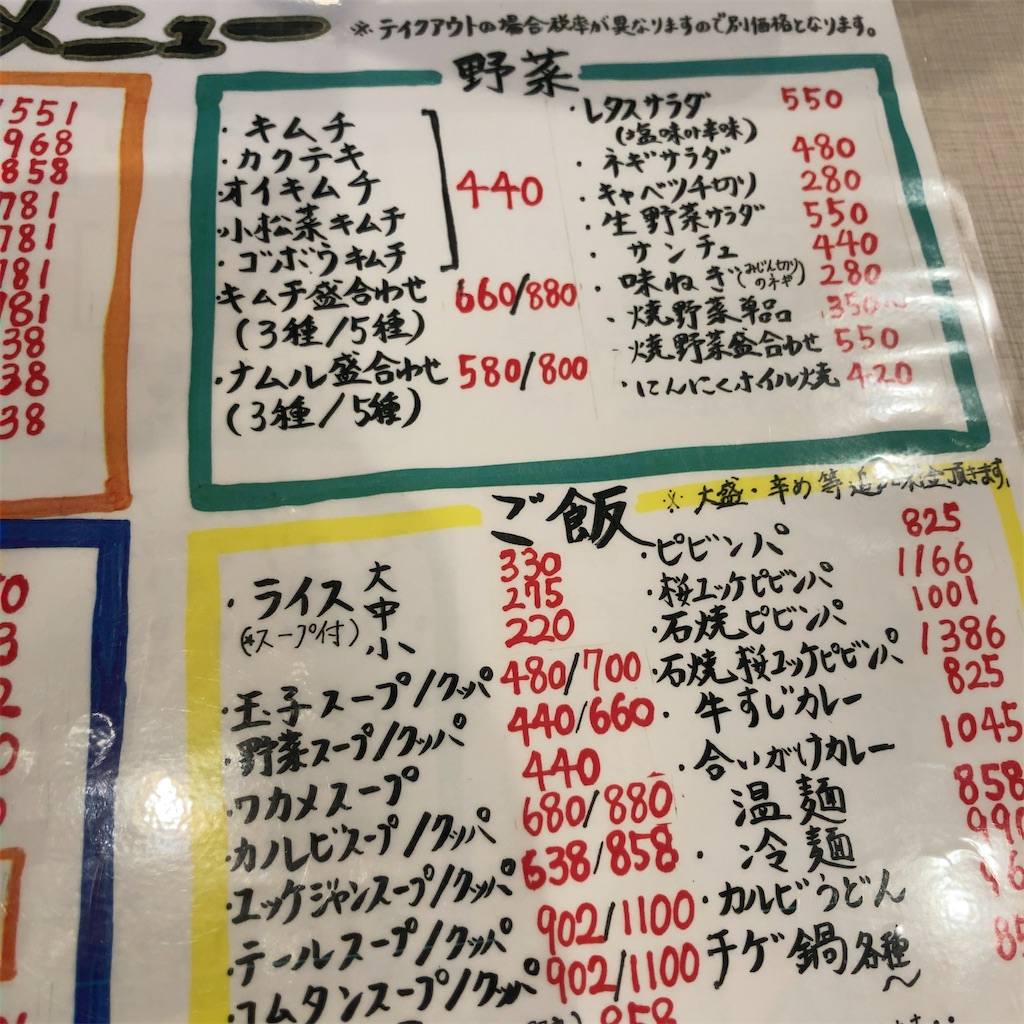 メニュー
※テイクアウトの場合税率が異なりますので別価格となります。
1551
968
858
781
781
781
781
38
38
38
野菜
・キムチ
・カクテキ
・オイキムチ
・小松菜キムチ
・ゴボウキムチ
440
・キムチ盛合わせ 660/880
(3種/5種)
・ナムル盛合わせ 580/800
(3種/5種)
・レタスサラダ 550
(塩味or辛味)
・ネギサラダ 480
・キャベツ千切り 280
・生野菜サラダ 550
・サンチュ 440
・味ねぎ(みじん切りのネギ) 280
・焼野菜単品 350
・焼野菜盛合わせ 550
・にんにくホイル焼 420
ご飯
※大盛・辛め等追加料金頂きます
・ライス 大 330
(※スープ付) 中 275
小 220
・玉子スープ/クッパ 480/700
・野菜スープ/クッパ 440/660
・ワカメスープ 440
・カルビスープ/クッパ 680/880
・ユッケジャンスープ/クッパ 638/858
・テールスープ/クッパ 902/1100
・コムタンスープ/クッパ 902/1100
858
・ピビンパ 825
・桜ユッケピビンパ 1166
・石焼ピビンパ 1001
・石焼桜ユッケピビンパ 1386
・牛すじカレー 825
・合いがけカレー 1045
温麺 858
・冷麺 990
・カルビうどん
チゲ鍋各種~